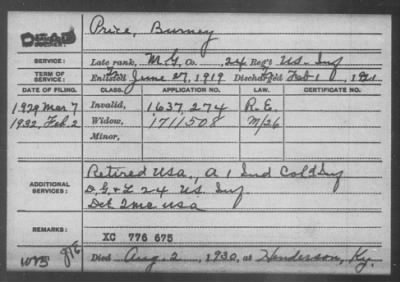 Price, Burney
NAME OF SOLDIER:
SERVICE: Late rank, M.G. Co. 24 Reg't U.S. Inf
TERM OF SERVICE: Enlisted June 27, 1919 Discharged Feb 1, 1921
DATE OF FILING. CLASS. APPLICATION NO. LAW. CERTIFICATE NO.
1929 Mar 7 Invalid, 1,637,274 R.E.
1932, Feb 2 Widow, 1711508 M/26
Minor,
ADDITIONAL SERVICES: Retired USA., A 1 Ind Cold Inf
D, G, & L 24 US. Inf
Det QMC USA
REMARKS: XC 776 675
Died Aug. 2, 1930, at Henderson, Ky.